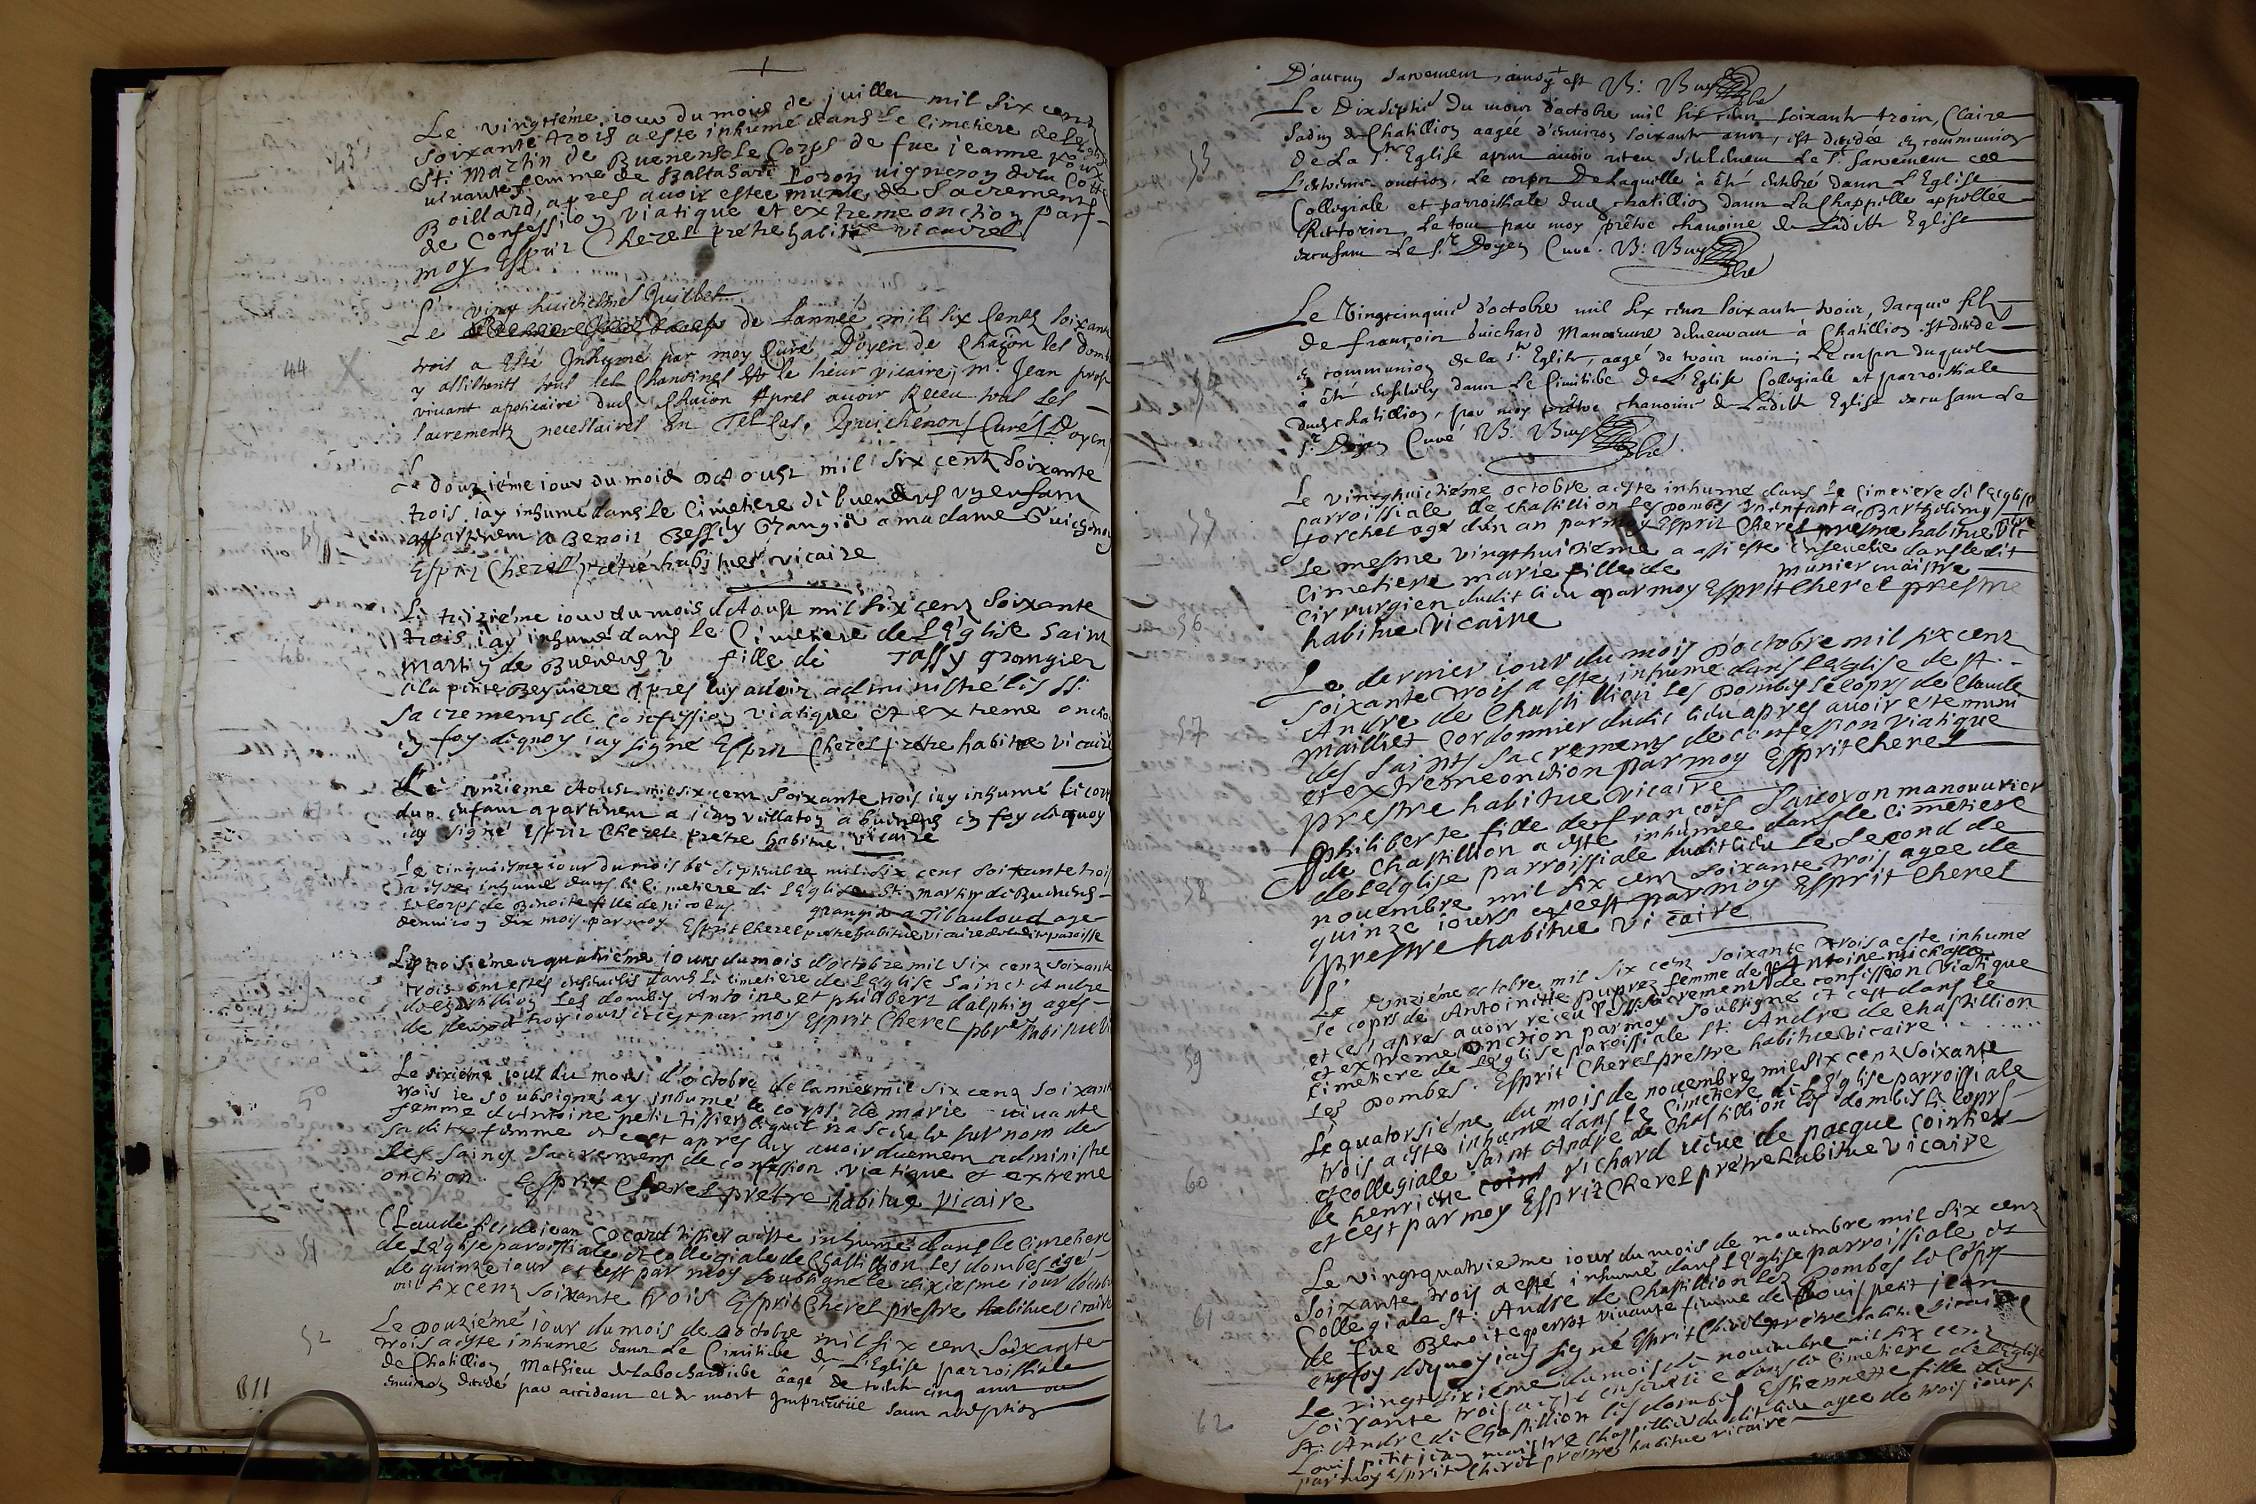 Le vingtiéme iour du mois de juillet mil six cens
soixante trois a este inhumé dans le Cimetiere de l'eglise
St. Martin de Buenens le Corps de fue jeanne
vivante femme de Baltasard Loron vigneron de la
Boillard, apres avoir estee munie de Sacrements
de Confession viatique et extreme onction par
moy Esprit Cherel prêtre habitué vicaire
vingt huictiesme Juillet
Le de l'année mil six Cents soixante
trois a esté Inhumé par moy Curé Doyen de Cha͠on les dombes
y assistants tous les Chanoines & le sieur vicaire; mr. Jean
vivant apoticaire dud. Apres avoir Receu tous les
44
sacrements necessaires En Tel Cas. Guichenon Curé Doyen
Le douziéme iour du mois d'Aoust mil six cent soixante
trois iay inhumé dans le Cimetiere de buenens un enfant
appartenent a Benoit Bessy Grangié a madame Guichenon
Esprit Cherel prêtre habitué vicaire
Le treiziéme iour du mois d'Aoust mil six cent soixante
trois iay inhumé dans le Cimetiere de l'Eglise Saint
Martin de Buenens fille de Tassy grangier
a la petite Beyviere apres luy avoir administré les SS.
Sacrements de confession viatique et extreme onction
en foy dequoy iay signé Esprit Cherel prêtre habitué vicaire
Le Aoust mil six cent soixante trois iay inhumé le corps
dun enfant apartenent a jean vullaton a buenens en foy dequoy
iay signé Esprit Cherel prêtre habitué vicaire
Le cinquiesme iour du mois de Septembre mil six cens soixante trois
a este inhumé dans le Cimetiere de l'Eglise St. Martin de Buenens
le Corps de Benoite fille de nicolas grangié a Tibauloud agé
denviron dix mois par moy Esprit Cherel prêtre habitué vicaire de ladite paroisse
Le troisiéme et quatriéme iours du mois d'octobre mil six cens soixante
trois ont estes ensevelis dans le cimetiere de l'Eglise Sainct Andre
de Chastillion les dombes Antoine et philibert dalphin ages
de deux ou trois iours et c'est par moy Esprit Cherel pbre habitué
Le sixiéme iour du mois d'octobre de lannée mil six cens soixante
50
trois ie soubsigné ay inhumé le corps de marie vivante
femme d'antoine petit tissier lequel na sceu le surnom de
sadite femme et c'est apres luy avoir duement administré
les Saincts Sacrements de confession viatique et extreme
onction. Esprit Cherel prétre habitué vicaire
Claude fils de jean Cocard tissier a este inhumé dans le cimetiere
51
de l'eglise paroissiale et collegiale de Chastillion les dombes agé
de quinze iour et c'est par moy soubsigné le dixiesme iour
mil six cens soixante trois Esprit Cherel prestre habitué vicaire
Le douziémé iour du mois de octobre mil six cens soixante
52
trois a este inhumé dans le Cimitiere de l'Eglise parroissiale
de Chatillion Mathieu de Labochardiere âagé de trente cinq ans ou
environ décedé par accident et de mort Impreveüe sans réception
D'aucun sacrement, ainsy est B: Buy
Le Dixseptie du mois d'octobre mil six cens soixante trois, Claire
Sadin de Chatillion aagée d'environ soixante ans, est decédée en communion
53
de La Ste Eglise apres avoir receu Le St. Sacrement
L'extreme onction. Le corps De Laquelle à êté enterré dans L'Eglise
Collegiale et parroissiale dud. chatillion dans La Chappelle appellée
Le tout par moy prêtre chanoine de Ladite Eglise
en Le Sr Doyen Curé. B: Buy
Le Vingtcinquie d'octobre mil six cens soixante trois, Jacques fils
de françois buichard Manoeuvre demeurant à Chatillion. est decédé
en communion de la Ste Eglise, aagé de trois mois; Le corps duquel
à êté ensevely dans Le Cimitiere De L'Eglise Collegiale et parroissiale
dud. chatillion, par moy prêtre chanoine de Ladite Eglise Le
Sr. Doyen Curé B: Buy
Le vingthuictiéme octobre a este inhumé dans le Cimetiere de l'eglise
parroissiale de Chastillion les dombes un enfant a Barthelemy
Gorchet agé dun an par moy Esprit Cherel prestre habitué
Le mesme vingthuitiéme a assi este ensevelie dans ledit
Cimetiere marie fille de munier maistre
56
Cirrurgien dudit lieu par moy Esprit Cherel prestre
habitué Vicaire
Le dernier iour du mois d'octobre mil six cens
soixante trois a este inhumé dans l'Eglise de St.
Andre de Chastillion les dombes le corps de Claude
57
mailliet Cordonnier dudit lieu apres avoir este muni
des saints Sacrements de confession viatique
et extreme onction par moy Esprit Cherel
prestre habitué vicaire
philiberte fille de francois Savoyon manouvrier
de Chastillion a este inhumée dans le cimetiere
de l'Eglise parroissiale dudit lieu le second de
58
novembre mil six cens soixante trois agée de
quinze iours et c'est par moy Esprit Cherel
prestre habitué vicaire
Le onziéme octobre mil six cens soixante trois a este inhumé
le corps de Antoinette puprez femme de Antoine
et c'est apres avoir receu les SS. Sacrements de confession viatique
et extreme onction par moy soubsigné et c'est dans le
59
cimetiere de l'Eglise paroissiale St. Andre de Chastillion
les dombes. Esprit Cherel prestre habitué vicaire
Le quatorsiéme du mois de novembre mil six cens soixante
trois a este inhumé dans le Cimetiere de l'Eglise parroissiale
et collegiale Saint Andre de Chastillion les dombes le corps
60
de henriette richard veue de pacque cointier
et c'est par moy Esprit Cherel prétre habitué vicaire
Le vingtquatriéme iour du mois de novembre mil six cens
soixante trois a esté inhumé dans l'Eglise parroissiale et
Collegiale St. André de Chastillion les Dombes le Corps
61
de fue Benoite perrot vivante femme de Louis petit jean
en foy dequoy iay signé Esprit Cherel prêtre habitué vicaire
Le vingt sixiéme du mois de novembre mil six cens
soixante trois a esté ensevelie dans le Cimetiere de l'Eglise
62
St. André de Chastillion les dombes Estiennette fille de
Louis petit jean maistre chappellier dudit lieu agee de trois iours
par moy Esprit Cherel prestre habitué vicaire